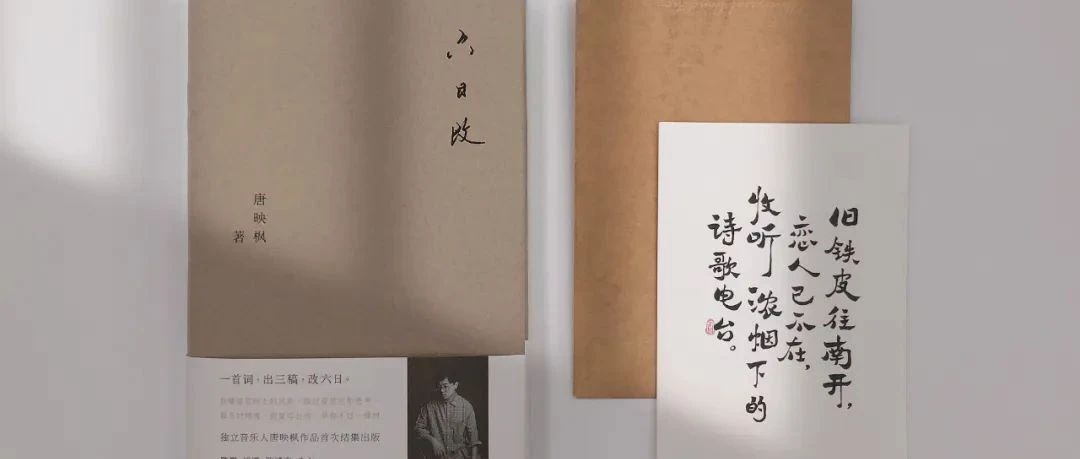 六日改
唐映枫
著
一首词,出三稿,改六日。
独立音乐人唐映枫作品首次结集出版
旧铁皮往南开,
恋人已不在,
收听浓烟下的
诗歌电台。